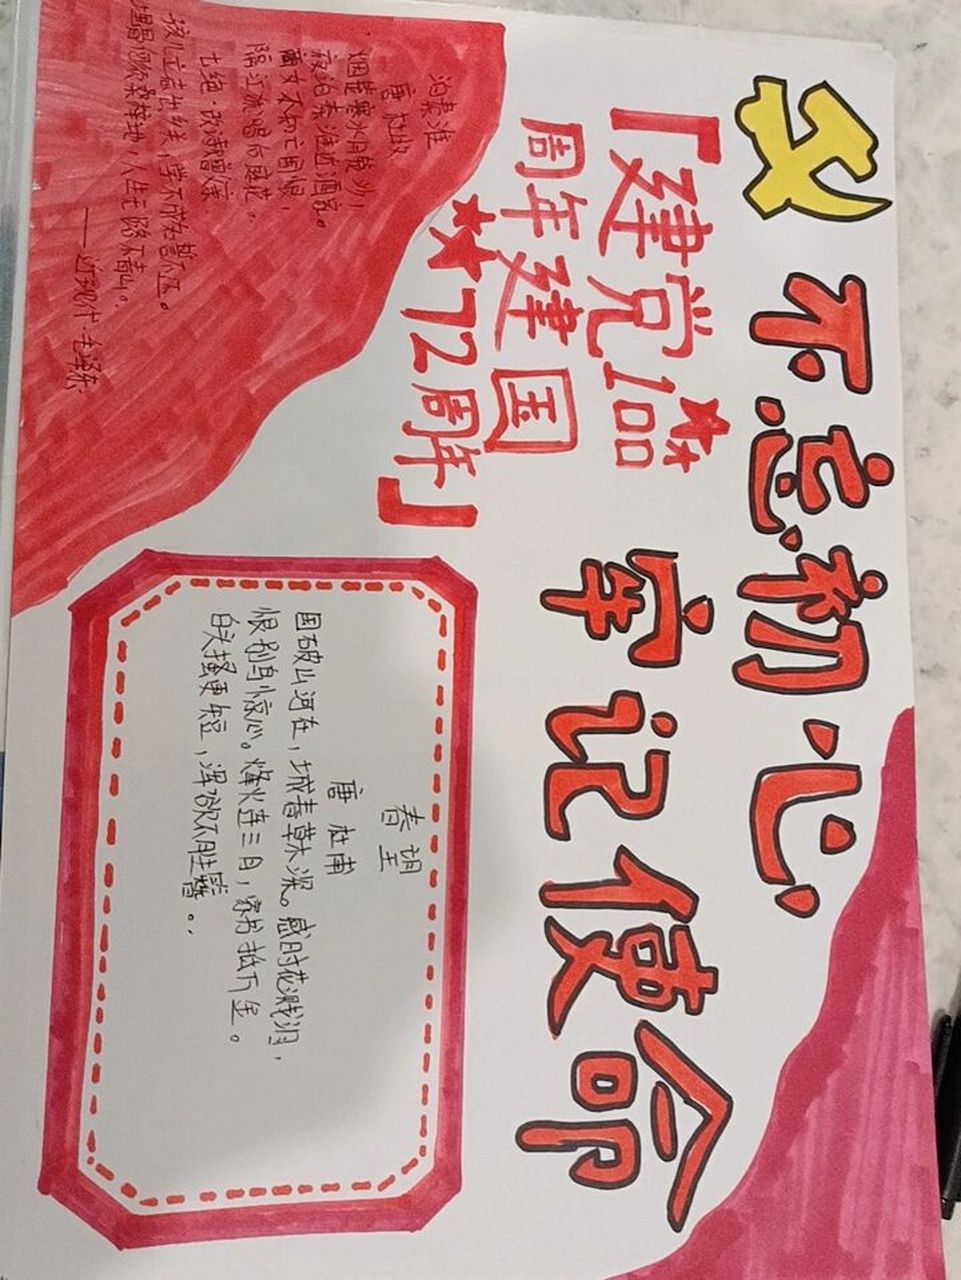 不忘初心
牢记使命
「建党100
周年建国
72周年」
泊秦淮
唐 杜牧
烟笼寒水月笼沙，
夜泊秦淮近酒家。
商女不知亡国恨，
隔江犹唱后庭花。
七绝·改诗赠父亲
孩儿立志出乡关，学不成名誓不还。
埋骨何须桑梓地，人生无处不青山。
——近现代·毛泽东
春望
唐 杜甫
国破山河在，城春草木深。感时花溅泪，
恨别鸟惊心。烽火连三月，家书抵万金。
白头搔更短，浑欲不胜簪。